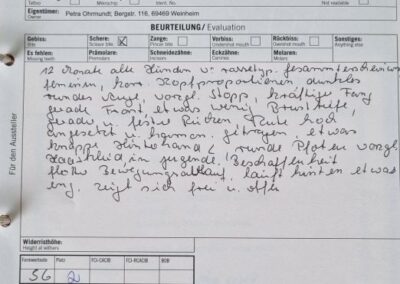 Eigentümer: Petra Ohrmundt; Bergstr. 116, 69469 Weinheim
Owner
BEURTEILUNG/ Evaluation
Gebiss: Schere: Zange: Vorbiss: Rückbiss: Sonstiges:
Bite Scissor bite Pincer bite Undershot mouth Overshot mouth Anything else
Es fehlen: Prämolare: Schneidezähne: Eckzähne: Molaren:
Missing teeth Premolars Incisors Canines Molars
12 Monate alte Hündin v. rassetyp. Gesamterscheinung
feminin, korr. Kopfproportionen dunkles
rundes Auge, vorzgl. Stopp, kräftiger Fang
gerade Front etwas wenig Brusttiefe,
gerader u. fester Rücken, Rute hoch
angesetzt u. harmon. getragen, etwas
knappe Hinterhand, runde Pfoten vorzgl.
Haarkleid, in jugendl. Beschaffenheit
flotter Bewegungsablauf, läuft hinten etwas
eng, zeigt sich frei u. offen
Für den Aussteller
Widerristhöhe:
Height at withers
Formwertnote Platz FCI-CACIB FCI-RCACIB BOB
SG 2